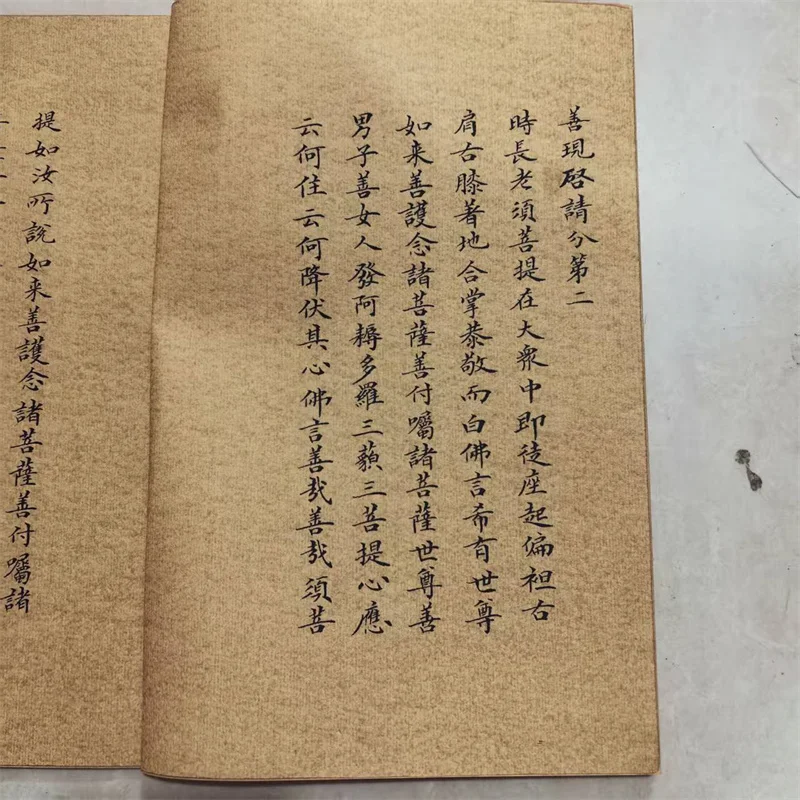 善現啓請分第二
時長老須菩提在大衆中即從座起偏袒右
肩右膝著地合掌恭敬而白佛言希有世尊
如来善護念諸菩薩善付囑諸菩薩世尊善
男子善女人發阿耨多羅三藐三菩提心應
云何住云何降伏其心佛言善哉善哉須菩
提如汝所說如来善護念諸菩薩善付囑諸